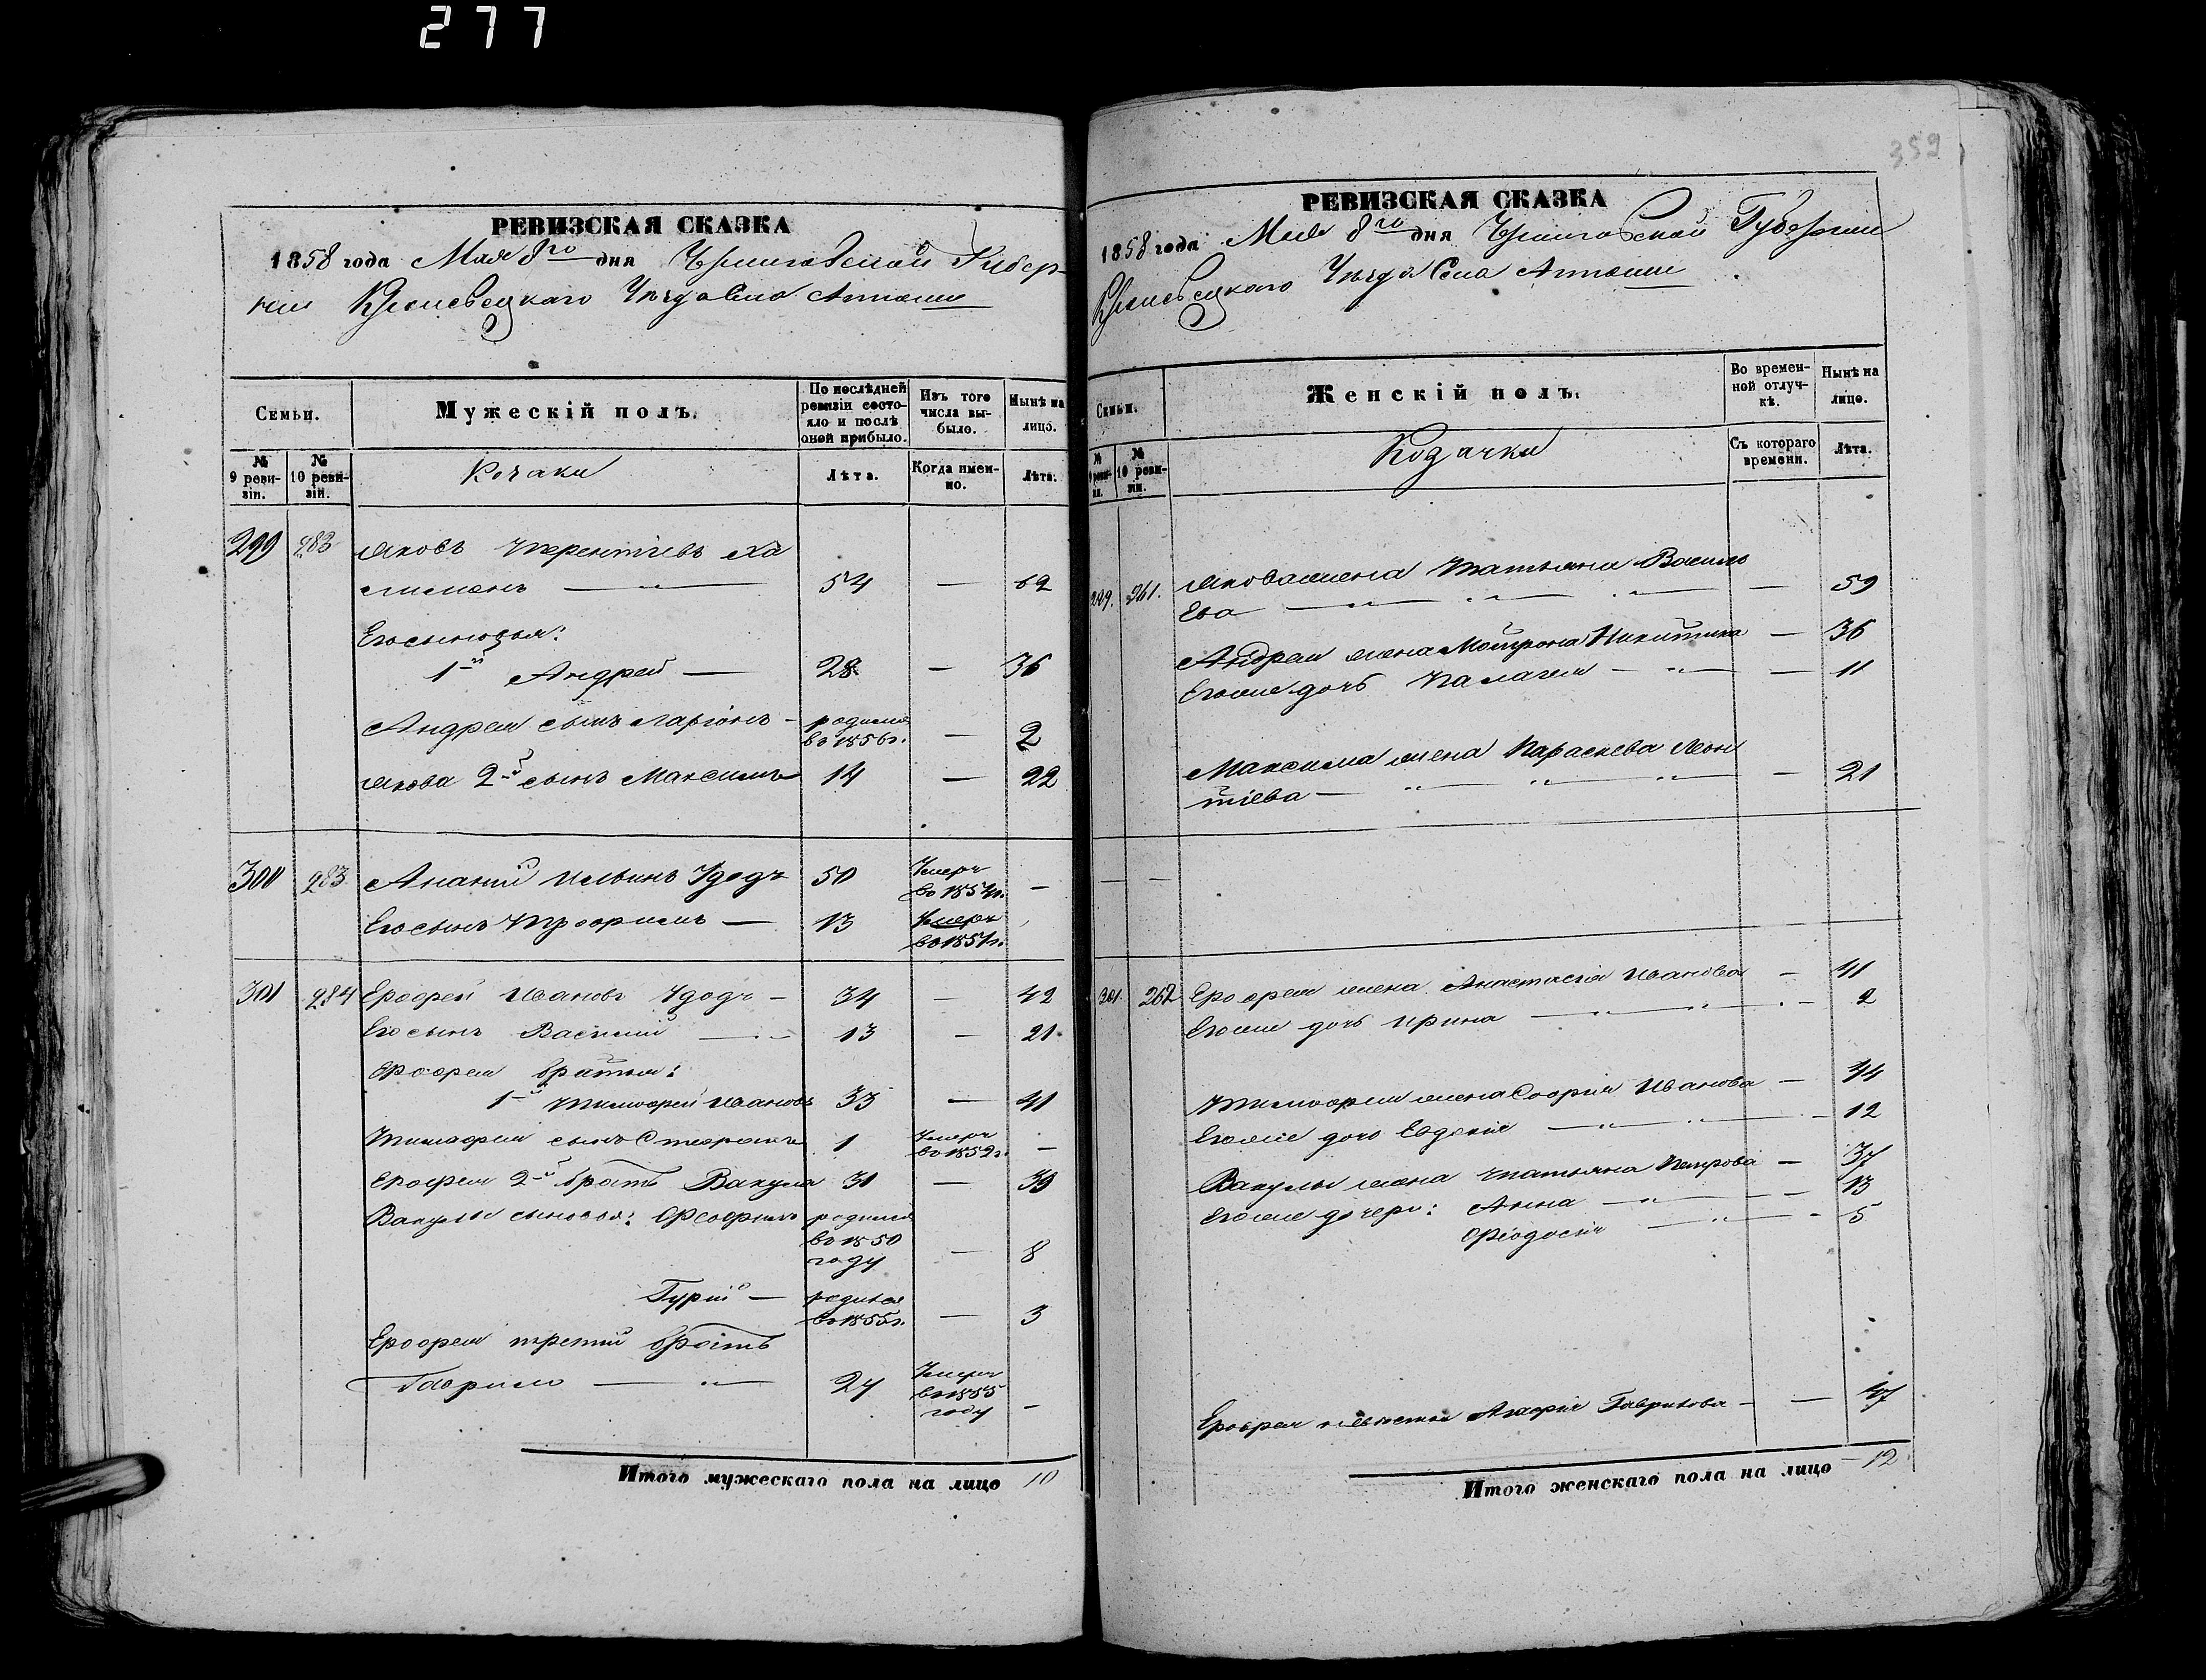 277
РЕВИЗСКАЯ СКАЗКА
1858 года Мая 8го дня Черниговской Губер-
нии Кролевецкаго Уѣзда Села
Семьи.
Мужескій полъ.
По послѣдней ревизіи состо-яло и послѣ оной прибыло.
Изъ того числа вы-было.
Нынѣ на лицо.
№ 9 реви-зіи.
№ 10 реви-зіи.
Козаки
Лѣта.
Когда имен-но.
Лѣта.
299 282 Яковъ Терентіевъ Ха
— 54 — 62
Его сыновья:
1й Андрей — 28 — 36
Андрея сынъ Ларіонъ - родился во 1856г. — 2
Якова 2й сынъ Максимъ 14 — 22
300 283 Ананій Ильинъ Удодъ 50 Умеръ во 1854г. —
Его сынъ Трофимъ — 13 Умеръ во 1851г.
301 284 Ерофей Ивановъ Удодъ — 34 — 42
Его сынъ Василий — 13 — 21
Ерофея братья:
1й Тимофей Ивановъ 33 — 41
Тимофея сынъ Стефанъ 1 Умеръ во 1852г. —
Ерофея 2й братъ Вакула 31 — 39
Вакулы сыновья: Феофилъ родился во 1850 году — 8
Гурій — родился во 1855г. — 3
Ерофея третий братъ
Гаврило — 24 Умеръ во 1855 году —
Итого мужескаго пола на лицо 10
352
РЕВИЗСКАЯ СКАЗКА
1858 года Мая 8го дня Черниговской Губернии
Кролевецкаго Уѣзда Села
Семьи.
Женскій полъ.
Во времен-ной отлуч-кѣ.
Нынѣ на лицо.
№ 9 реви-зіи.
№ 10 реви-зіи.
Козачки
Съ котораго времени.
Лѣта.
299. 261. Якова жена Татьяна Василь
Ева — — 59
Андрея жена Мотрона Никитина — 36
Его же дочь Палагея — — 11
Максима жена Параскева Леон
тіева — — 21
— —
301. 262 Ерофея жена Анастасія Иванова — 41
Его же дочь Ирина — 2
Тимофея жена Софія Иванова — 44
Его же дочь Евдокія — 12
Вакулы жена Татьяна Петрова — 37
Его же дочери: Анна — 13
Феодосія — 5
Ерофея Гаврилова — — 47
Итого женскаго пола на лицо 12